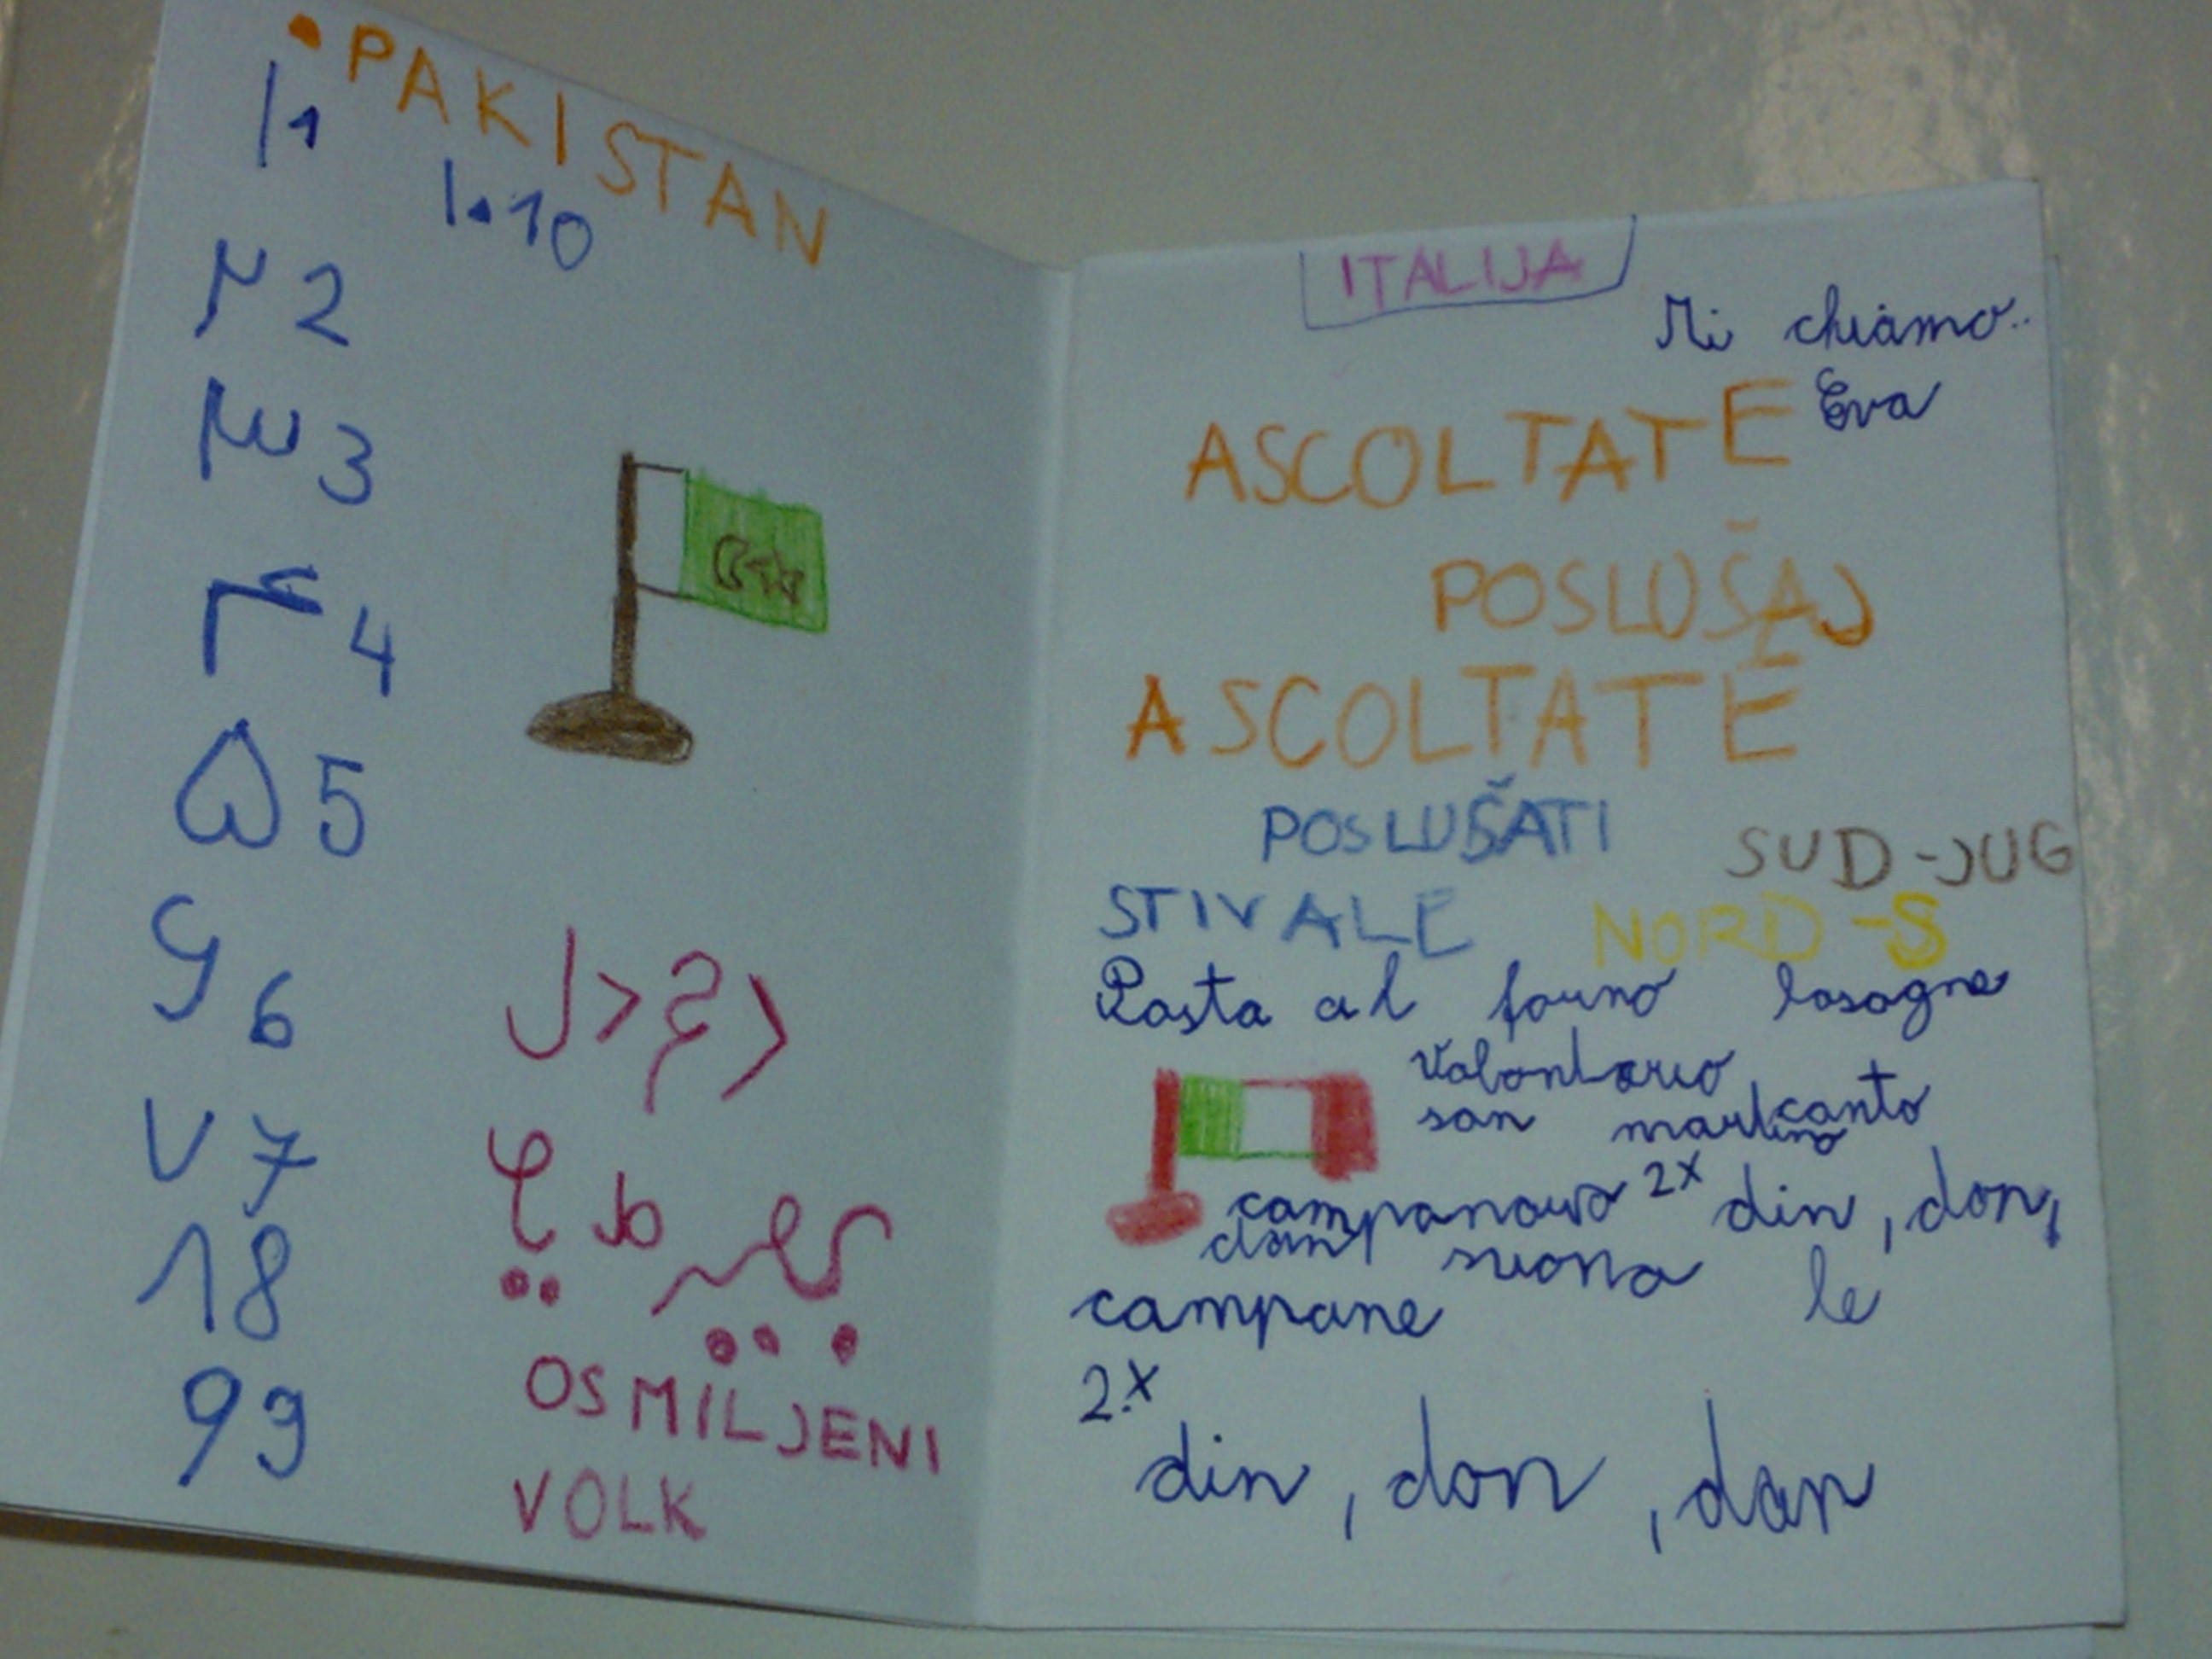 • PAKISTAN
١ 1
١٠ 10
٢ 2
٣ 3
۴ 4
۵ 5
۶ 6
٧ 7
٨ 8
٩ 9
OSMILJENI
VOLK
ITALIJA
Mi chiamo..
Eva
ASCOLTATE
POSLUŠAJ
ASCOLTATE
POSLUŠATI
SUD-JUG
STIVALE NORD-S
Pasta al forno lasagne
san martino canto
campanaro 2x din, don,
dan suona le
campane
2x
din, don, dan